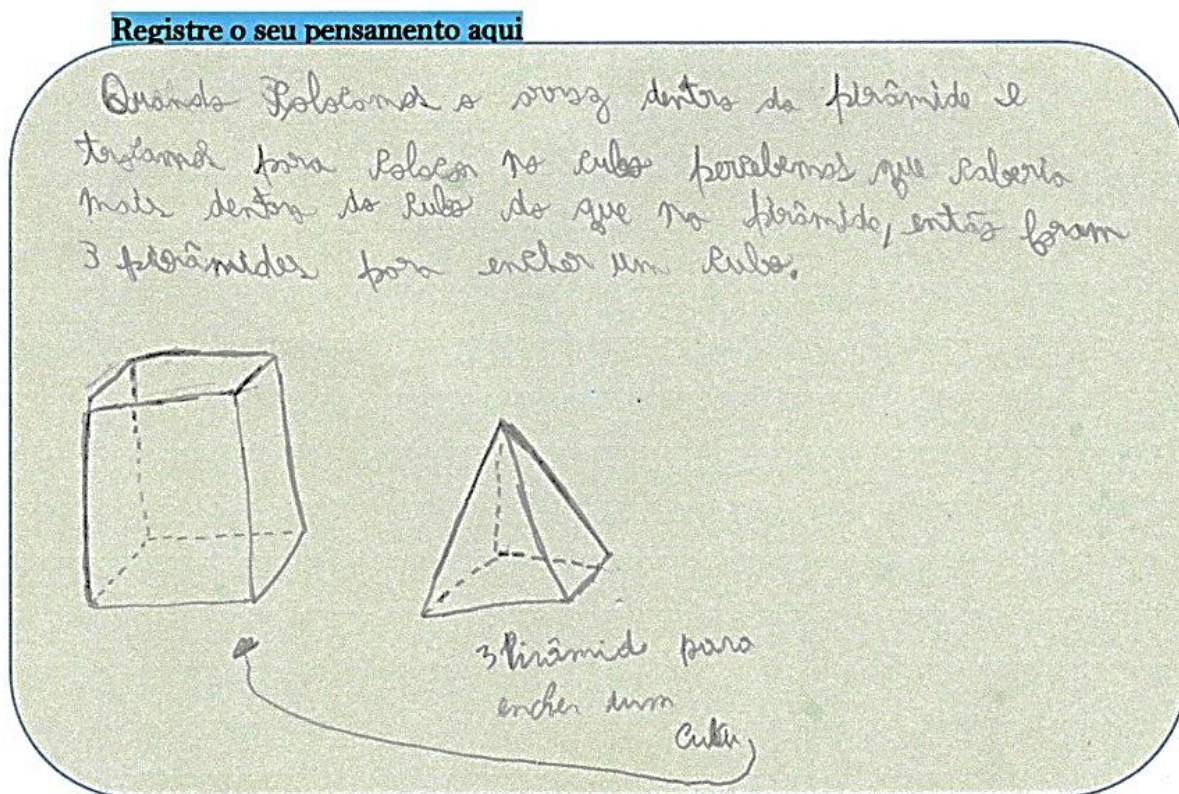 Registre o seu pensamento aqui
Quando colocamos o arroz dentro da pirâmide e
para colocar no cubo percebemos que caberia
mais dentro do cubo do que na pirâmide, então foram
3 pirâmides para encher um cubo.
3 Pirâmid para
encher um
cubo